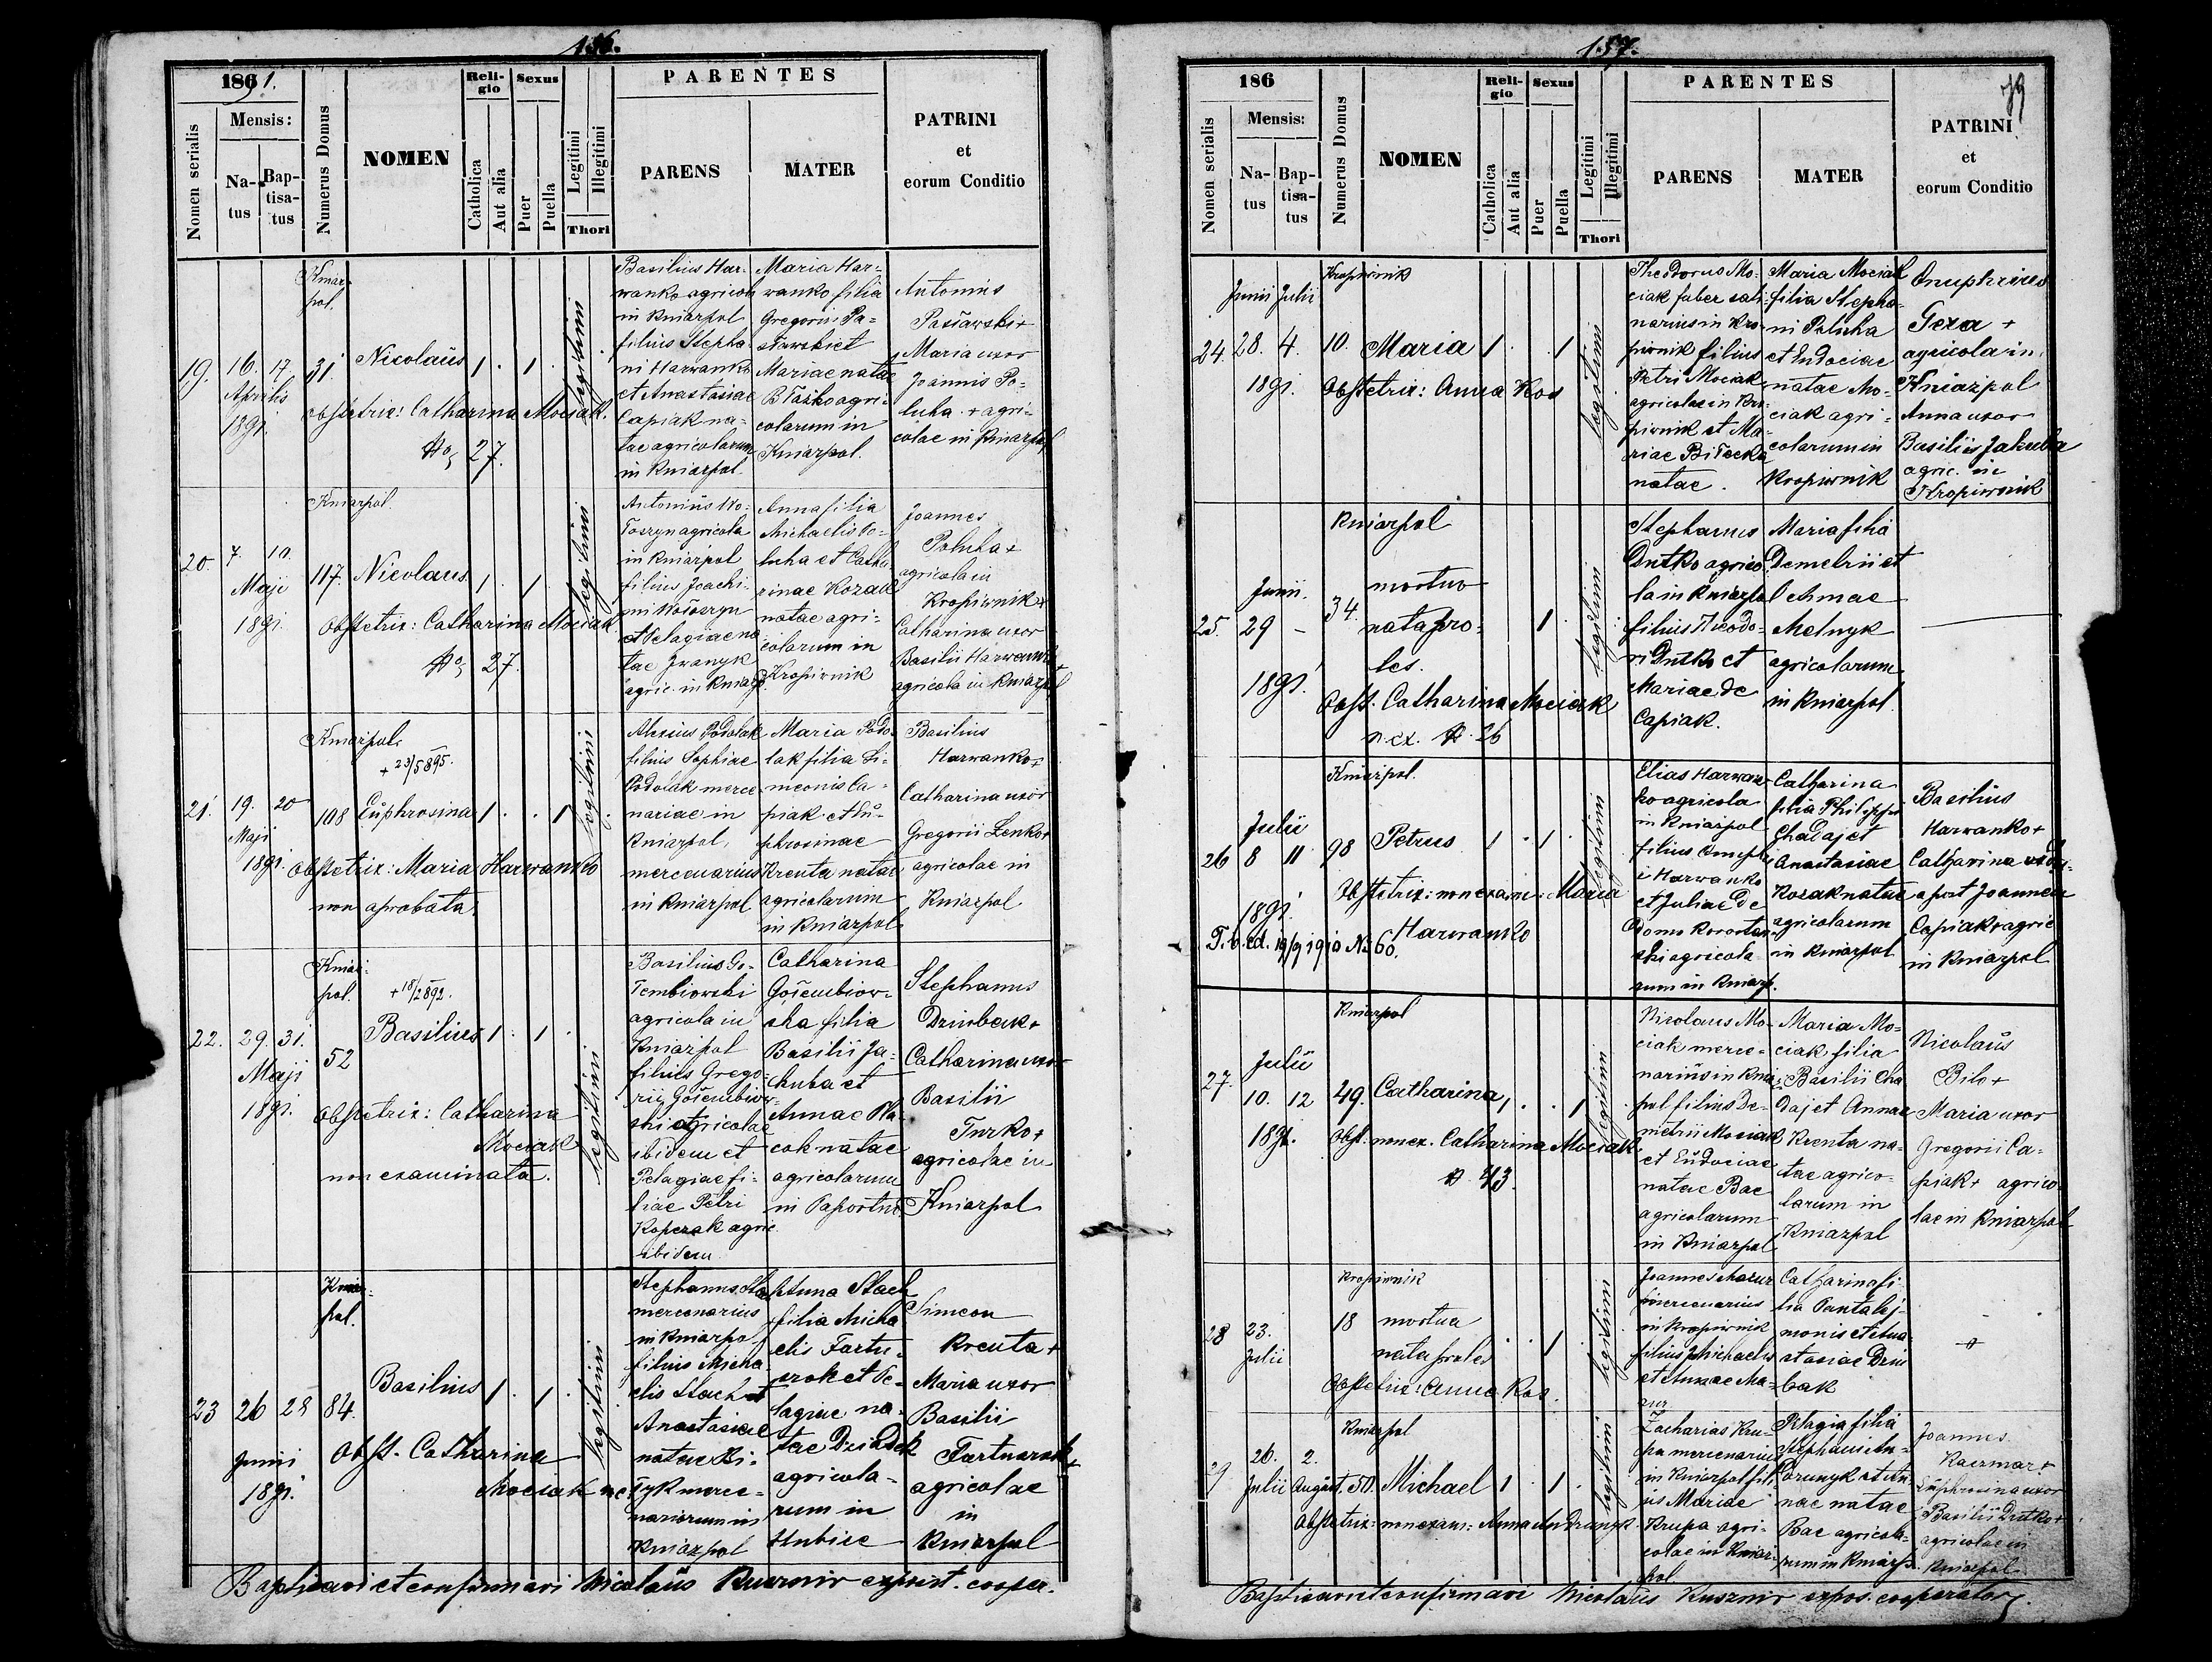 156.
1891.
Nomen serialis
Mensis:
Natus
Baptisatus
Numerus Domus
NOMEN
Religio
Catholica
Aut alia
Sexus
Puer
Puella
Legitimi
Illegitimi
Thori
PARENTES
PARENS
MATER
PATRINI
et
eorum Conditio
19.
16. 17
Aprilis
1891.
Kniaz-
pol.
31.
Nicolaus
1 . 1 .
legitimi
Obstetrix: Catharina Mociak.
No 27.
Basilius Har-
wanko agricola
in Kniazpol
filius Stepha-
ni Harwanko
et Anastasiae
Capiak na-
tae agricolarum
in Kniazpol.
Maria Har-
wanko filia
Gregorii Pa-
sławski et
Mariae natae
Błażko agri-
colarum in
Kniazpol.
Antonius
Pasławski +
Maria uxor
Joannis Po-
luha + agri-
colae in Kniazpol
20.
7. 10.
Maji
1891.
Kniazpol.
117.
Nicolaus
1 . 1
legitimi
Obstetrix: Catharina Mociak
No 27.
Antonius Wo-
łoszyn agricola
in Kniazpol
filius Joachi-
mi Wołoszyn
et Pelagiae na-
tae Iwanyk
agric. in Kniazp.
Anna filia
Michaelis Po-
luha et Catha-
rinae Kozak
natae agri-
colarum in
Kropiwnik
Joannes
Poluha +
agricola in
Kropiwnik +
Catharina uxor
Basilii Harwanko +
agricola in Kniazpol
21.
19. 20
Maji
1891.
Kniazpol.
+ 23/5 895.
108
Euphrosina
1 . . 1
legitimi
Obstetrix: Maria Harwanko
non aprobata.
Alexius Podolak
filius Sophiae
Podolak merce-
nariae in
Kniazpol,
mercenarius
in Kniazpol
Maria Podo-
lak filia Si-
meonis Ca-
piak et Eu-
phrosinae
Krenta natae
agricolarum
in Kniazpol
Basilius
Harwanko +
Catharina uxor
Gregorii Zenko +
agricolae in
Kniazpol
22.
29. 31.
Maji
1891.
Kniaz-
pol.
+ 18/2 892.
52
Basilius
1 . 1 .
legitimi
Obstetrix: Catharina
Mociak
non examinata.
Basilius Go-
łembiowski
agricola in
Kniazpol
filius Grego-
rii Gołembiow-
ski agricolae
ibidem et
Pelagiae fi-
liae Petri
Koperzak agric
ibidem
Catharina
Gołembiow-
ska filia
Basilii Ja-
kuba et
Annae
natae
agricolarum
in Paportno.
Stephanus
Dzinbak +
Catharina uxor
Basilii
Turko +
agricolae in
Kniazpol
23
26 28
Junii
1891.
Kniaz-
pol.
84.
Basilius
1 . 1 .
legitimi
Obst. Catharina
Mociak n.e.
Stephanus Stach
mercenarius
in Kniazpol
filius Micha-
elis Stach et
Anastasiae
natae
merce-
nariorum in
Kniazpol
Anna Stach
filia Micha-
elis Fartu-
szok et Pe-
lagiae na-
tae Dziadek
agricola-
rum in
Hubice
Simeon
Krenta +
Maria uxor
Basilii
Fartuszok +
agricolae
in
Kniazpol
Baptisavi et confirmavi Nicolaus Kusznir exposit. cooper.
157.
79
186
Nomen serialis
Mensis:
Natus
Baptisatus
Numerus Domus
NOMEN
Religio
Catholica
Aut alia
Sexus
Puer
Puella
Legitimi
Illegitimi
Thori
PARENTES
PARENS
MATER
PATRINI
et
eorum Conditio
24
Junii Julii
28. 4.
1891.
Kropiwnik
10.
Maria
1 . . 1
legitimi
Obstetrix: Anna Kos
Theodorus Mo-
ciak faber sali-
narius in Kro-
piwnik filius
Petri Mociak
agricolae in Kro-
piwnik et Ma-
riae Biłecka
natae.
Maria Mociak
filia Stepha-
ni Poluha
et Eudociae
natae Mo-
ciak agri-
colarum in
Kropiwnik
Onuphrius
Geza +
agricola in
Kniazpol
Anna uxor
Basilii Jakuba
agric. in
Kropiwnik
25.
Junii.
29 –
1891.
Kniazpol
34.
mortuo
nata pro-
les.
1
legitimi
Obst. Catharina Mociak
n. ex. N. 26
Stephanus
Dutko agrico-
la in Kniazpol
filius Theodo-
ri Dutko et
Mariae de
Capiak.
Maria filia
Demetrii et
Annae
Melnyk
agricolarum
in Kniazpol.
26
Julii
8 11
1891.
Kniazpol.
98
Petrus
1 . 1 .
legitimi
Obstetrix: non exam: Maria
Harwanko
T. b. ed. 19/9 1910 No 60.
Elias Harwan-
ko agricola
in Kniazpol
filius Onuph-
i Harwanko
et Juliae de
domo
agricola-
rum in Kniazp.
Catharina
filia Philippi
Chałaj et
Anastasiae
Kozak natae
agricolarum
in Kniazpol
Basilius
Harwanko +
Catharina uxor
apost Joannem
Capiak + agric
in Kniazpol
27.
Julii
10. 12
1891.
Kniazpol
49.
Catharina
1 . . 1
legitimi
Obst: non ex. Catharina Mociak
N 43.
Nicolaus Mo-
ciak merce-
narius in Kniaz-
pol filius De-
metrii Mociak
et Eudociae
natae Bac
agricolarum
in Kniazpol
Maria Mo-
ciak filia
Basilii Cha-
łaj et Annae
Krenta na-
tae agrico-
larum in
Kniazpol
Nicolaus
Bilo +
Maria uxor
Gregorii Ca-
piak + agrico-
lae in Kniazpol
28
23.
Julii
Kropiwnik
18
mortua
nata proles
. . 1
legitimi
Obstetrix: Anna Kos.
Joannes Mazur
mercenarius
in Kropiwnik
filius Michaelis
et Annae Ma-
zur
Catharina fi-
lia Pantalej-
monis et Ana-
stasiae Dzin-
bak
29
26. 2.
Julii August.
Kniazpol
50.
Michael
1 . 1 .
legitimi
Obstetrix: non exam: Anna Andrunyk.
Zacharias Kru-
pa mercenarius
in Kniazpol fili-
us Mariae
Krupa agri-
colae in Kniaz-
pol.
Pelagia filia
Stephani An-
drunyk et An-
nae natae
Bac agricola-
rum in Kniazp.
Joannes
Kaczmar +
Euphrosina uxor
Basilii Dutko +
agricolae in
Kniazpol
Baptisavi et confirmavi Nicolaus Kusznir expos. cooperator.